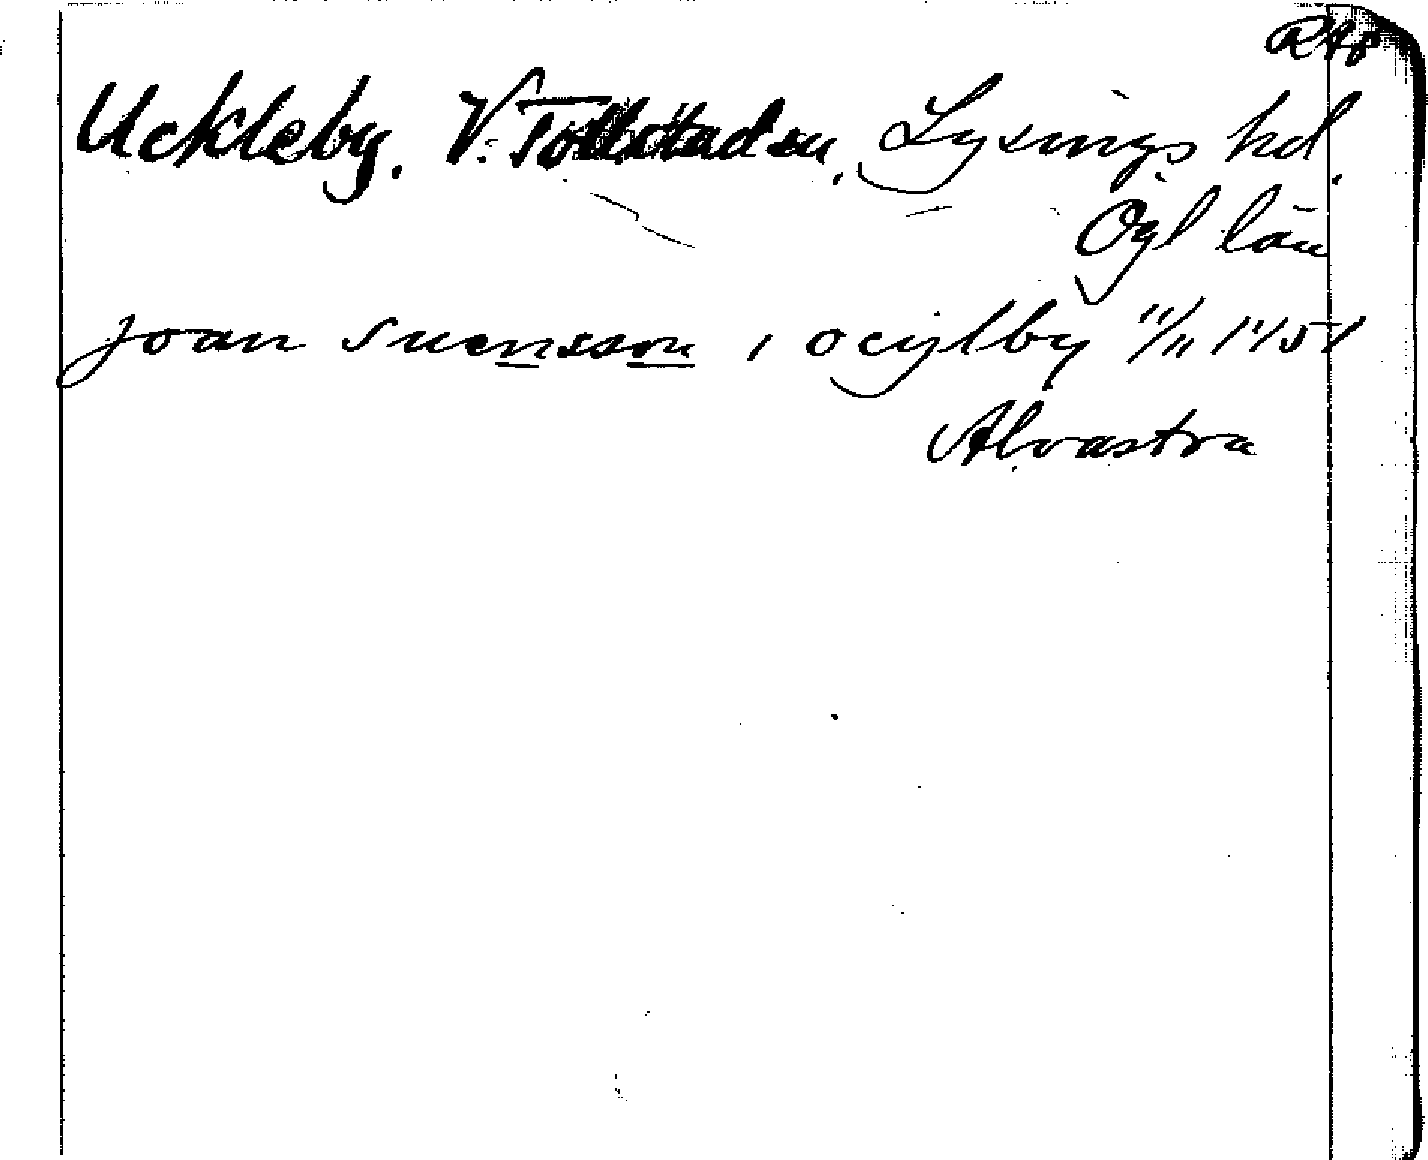 RAp
Uckleby. V. Tollstad sn, Lysings hd.
Ögl län
joan suensson i ocylby 11/11 1451
Alvastra